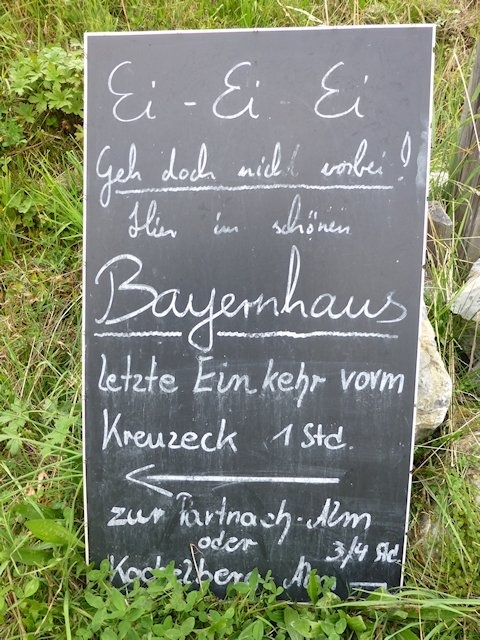 Ei - Ei - Ei
Geh doch nicht vorbei!
Hier im schönen
Bayernhaus
letzte Einkehr vorm
Kreuzeck 1 Std.
zur Partnach-Alm
oder 3/4 Std.
Kochelberg Alm